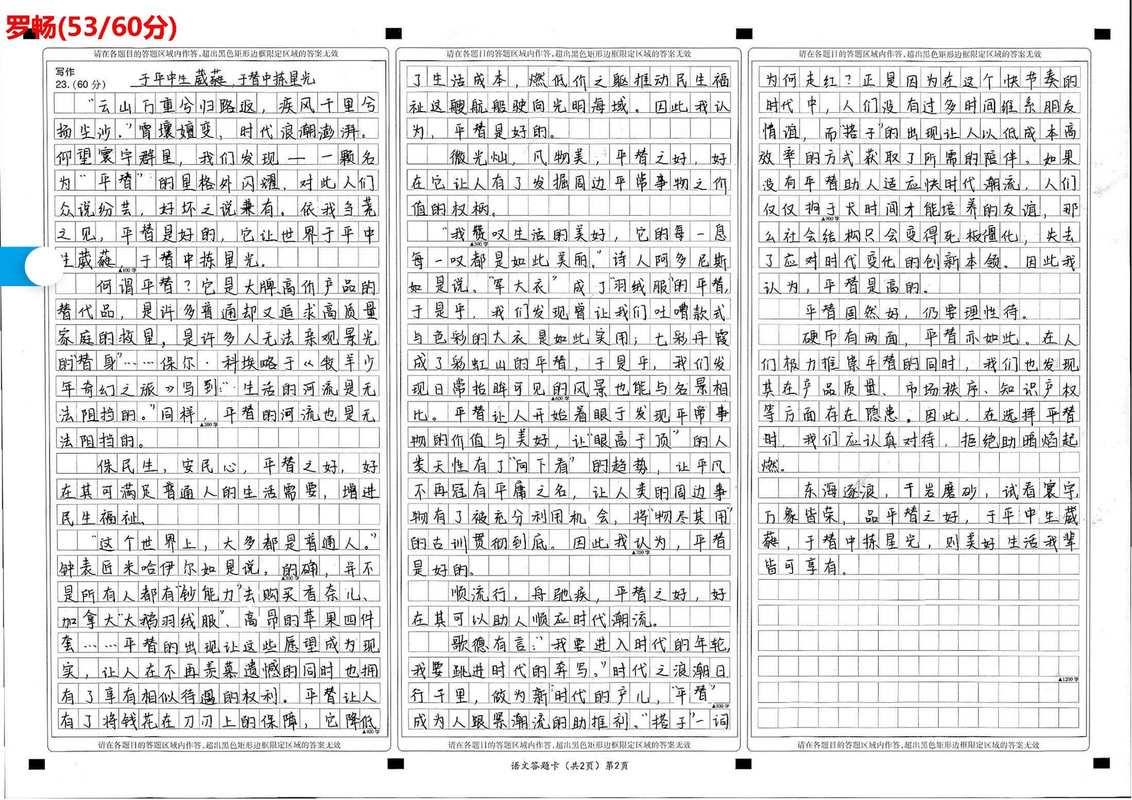 罗畅(53/60分)
请在各题目的答题区域内作答,超出黑色矩形边框限定区域的答案无效
写作
23.(60分)
于平中生葳蕤,于替中拣星光
“云山万重兮归路遐,疾风千里兮
扬尘沙。”霄壤嬗变,时代浪潮澎湃。
仰望寰宇群星,我们发现——一颗名
为“平替”的星格外闪耀,对此人们
众说纷芸,好坏之说兼有。依我刍荛
之见,平替是好的,它让世界于平中
生葳蕤,于替中拣星光。
▲100字
何谓平替?它是大牌高价产品的
替代品,是许多普通却又追求高质量
家庭的救星,是许多人无法亲观景光
的“替身”……保尔·科埃略于《牧羊少
年奇幻之旅》写到:“生活的河流是无
法阻挡的。”同样,平替的河流也是无
▲200字
法阻挡的。
保民生,安民心,平替之好,好
在其可满足普通人的生活需要,增进
民生福祉、
“这个世界上,大多都是普通人。”
钟表匠米哈伊尔如是说。的确,并不
▲300字
是所有人都有“钞能力”去购买香奈儿、
加拿大“大鹅羽绒服”、高昂的苹果四件
套……平替的出现让这些愿望成为现
实,让人在不再羡慕遗憾的同时也拥
有了享有相似待遇的权利。平替让人
有了将钱花在刀刃上的保障,它降低
▲400字
请在各题目的答题区域内作答,超出黑色矩形边框限定区域的答案无效
请在各题目的答题区域内作答,超出黑色矩形边框限定区域的答案无效
了生活成本,燃低价之驱推动民生福
祉这艘航艇驶向光明海域。因此我认
为,平替是好的。
微光灿,风物美,平替之好,好
在它让人有了发掘周边平常事物之价
值的权柄。
“我赞叹生活的美好,它的每一息
▲500字
每一叹都是如此美丽。”诗人阿多尼斯
如是说。“军大衣”成了“羽绒服”的平替,
于是乎,我们发现曾让我们吐嘈款式
与色彩的大衣是如此实用;七彩丹霞
成了彩虹山的平替,于是乎,我们发
现日常抬眸可见的风景也能与名景相
▲600字
比。平替让人开始着眼于发现平常事
物的价值与美好,让“眼高于顶”的人
类天性有了“向下看”的趋势,让平凡
不再冠有平庸之名,让人类的周边事
物有了被充分利用机会,将“物尽其用”
的古训贯彻到底。因此我认为,平替
▲700字
是好的。
顺流行,舟驰疾,平替之好,好
在其可以助人顺应时代潮流。
歌德有言:“我要进入时代的年轮,
我要跳进时代的奔写。”时代之浪潮日
行千里,做为新“时代的产儿,“平替”
▲800字
成为人跟紧潮流的助推剂。“搭子”一词
请在各题目的答题区域内作答,超出黑色矩形边框限定区域的答案无效
语文答题卡(共2页)第2页
请在各题目的答题区域内作答,超出黑色矩形边框限定区域的答案无效
为何走红?正是因为在这个快节奏的
时代中,人们没有过多时间维系朋友
情谊,而“搭子”的出现让人以低成本高
效率的方式获取了所需的陪伴。如果
没有平替助人适应快时代潮流,人们
仅仅拘于长时间才能培养的友谊,那
▲900字
么社会结构只会变得死板僵化,失去
了应对时代变化的创新本领。因此我
认为,平替是高的。
平替固然好,仍要理性待。
硬币有两面,平替亦如此。在人
们极力推崇平替的同时,我们也发现
其在产品质量、市场秩序、知识产权
等方面存在隐患。因此,在选择平替
时,我们应认真对待,拒绝助暗焰起
燃。
东海逐浪,千岩磨砂,试看寰宇,
万象皆荣,品平替之好,于平中生葳
蕤,于替中拣星光,则美好生活我辈
皆可享有。
▲1200字
请在各题目的答题区域内作答,超出黑色矩形边框限定区域的答案无效